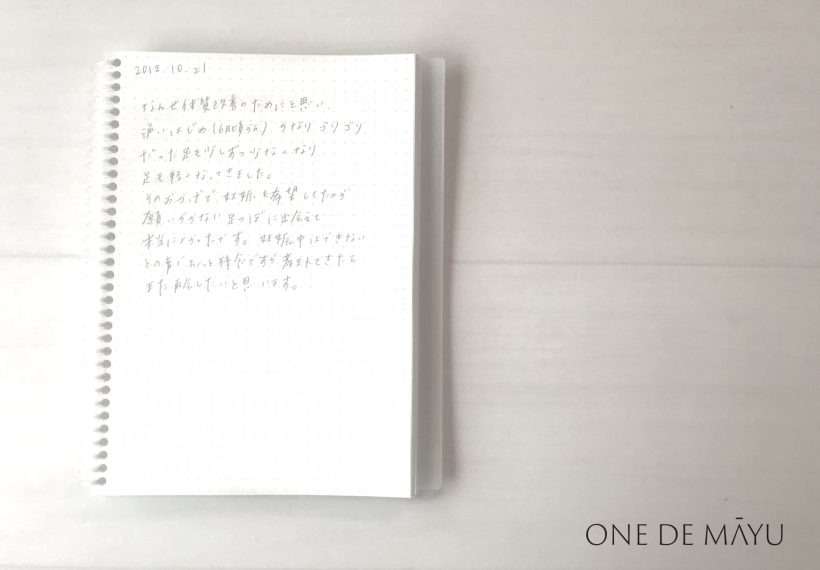 2018.10.21
なんせ体質改善のためにと思い、
通いはじめ(6月頃から) かなりゴリゴリ
だった足も少しずつ少なくなり
足も軽くなってきました。
そのおかげで、妊娠も希望してたのが
願いがかない 足つぼに出会えて
本当によかったです。妊娠中はできない
との事でちょっと残念ですが産まれてきたら
また再会したいと思います。
ONE DE MĀYU